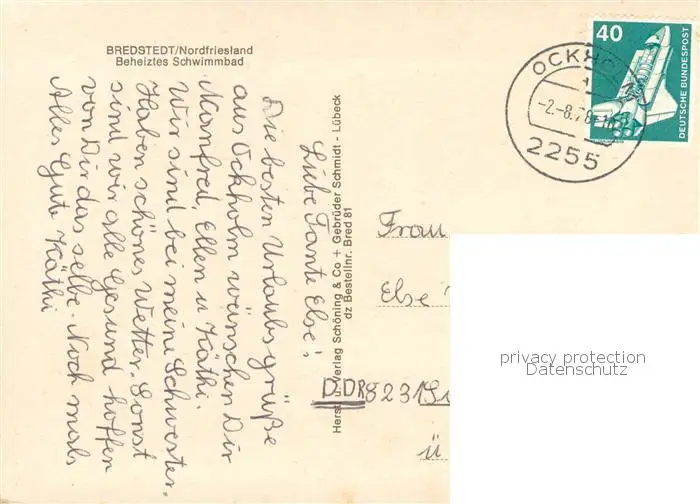 BREDSTEDT/Nordfriesland
Beheiztes Schwimmbad
Liebe Tante Else!
Die besten Urlaubsgrüße
aus Ockholm wünschen Dir
Manfred, Ellen u Käthi.
Wir sind bei meine Schwester.
Haben schönes Wetter. Sonst
sind wir alle Gesund hoffen
von Dir das selbe. Noch mals
Alles Gute Käthi
Verlag Schöning & Co + Gebrüder Schmidt - Lübeck
dz Bestellnr. Bred 81
40
DEUTSCHE BUNDESPOST
-2.-8.78
2255
Frau
Else
DDR 8231
ü
privacy protection
Datenschutz